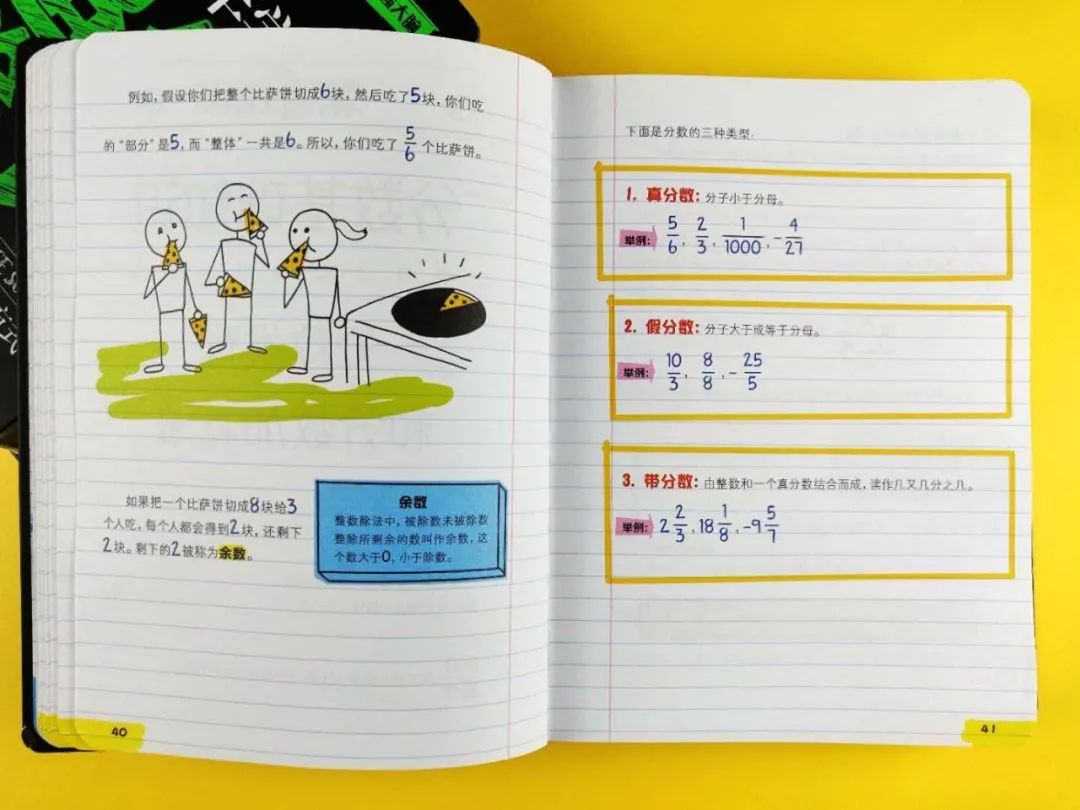 例如，假设你们把整个比萨饼切成6块，然后吃了5块，你们吃
的“部分”是5，而“整体”一共是6。所以，你们吃了 5/6 个比萨饼。
如果把一个比萨饼切成8块给3
个人吃，每个人都会得到2块，还剩下
2块。剩下的2被称为余数。
余数
整数除法中，被除数未被除数
整除所剩余的数叫作余数，这
个数大于0，小于除数。
40
下面是分数的三种类型：
1. 真分数：分子小于分母。
举例： 5/6, 2/3, 1/1000, -4/27
2. 假分数：分子大于或等于分母。
举例： 10/3, 8/8, -25/5
3. 带分数：由整数和一个真分数结合而成，读作几又几分之几。
举例： 2 2/3, 18 1/8, -9 5/7
41